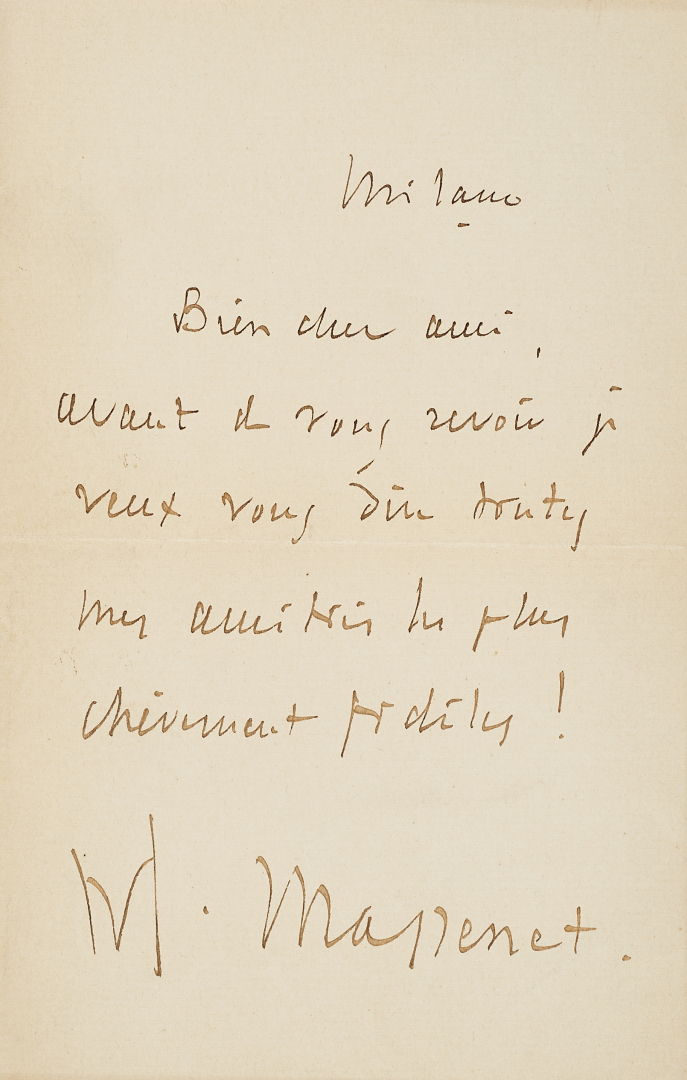 Milano
Bien cher ami,
avant de vous revoir je
veux vous dire toutes
mes amitiés les plus
chèrement fidèles !
M. Massenet.